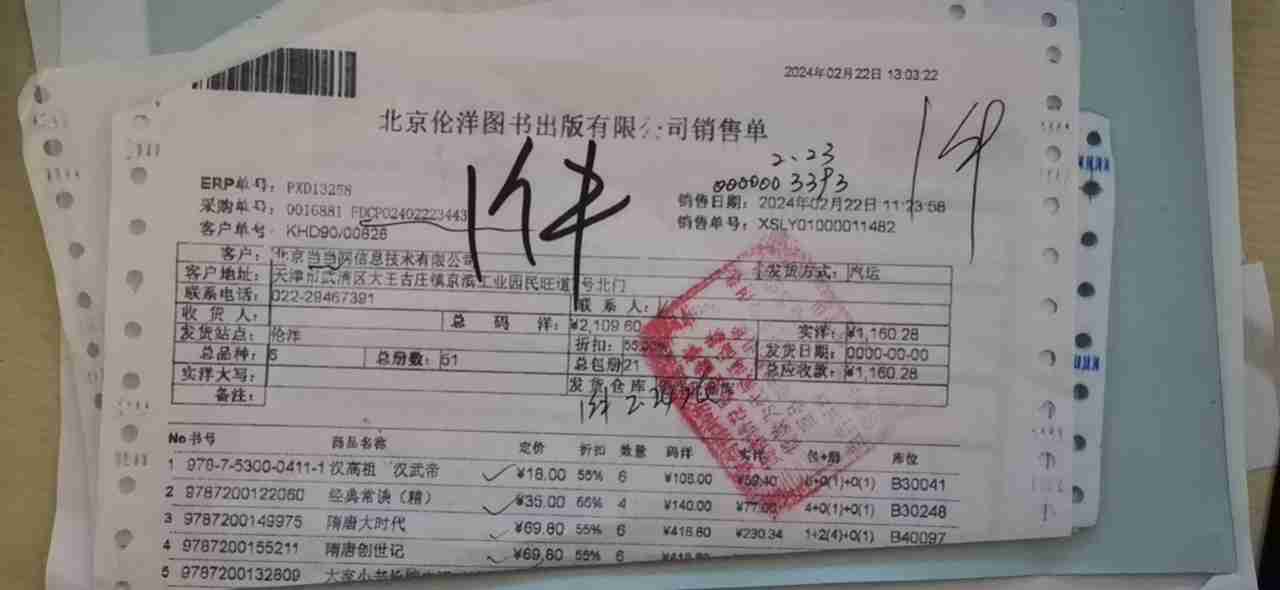 2024年02月22日 13:03:22
北京伦洋图书出版有限公司销售单
1件
1件
2.23
0000003393
ERP单号: PXD13258
采购单号: 0016881 FDCP02402223443
客户单号: KHD90/00828
销售日期: 2024年02月22日 11:23:58
销售单号: XSLY01000011482
客户: 北京当当网信息技术有限公司 发货方式: 汽运
客户地址: 天津市武清区大王古庄镇京滨工业园民旺道 号北门
联系电话: 022-29467391 联系人:
收货人: 总码洋: ¥2,109.60 实洋: ¥1,160.28
发货站点: 伦洋 折扣: 发货日期: 0000-00-00
总品种: 5 总册数: 51 总包册 21 总应收款: ¥1,160.28
实洋大写: 发货仓库
备注: 1件
No 书号 商品名称 定价 折扣 数量 码洋 实洋 包+册 库位
1 978-7-5300-0411-1 汉高祖 汉武帝 ¥18.00 55% 6 ¥108.00 ¥59.40 B30041
2 9787200122060 经典常谈（精） ¥35.00 55% 4 ¥140.00 ¥77.00 4+0(1)+0(1) B30248
3 9787200149975 隋唐大时代 ¥69.80 55% 6 ¥418.80 ¥230.34 1+2(4)+0(1) B40097
4 9787200155211 隋唐创世记 ¥69.80 55% 6 ¥418.80
5 9787200132809